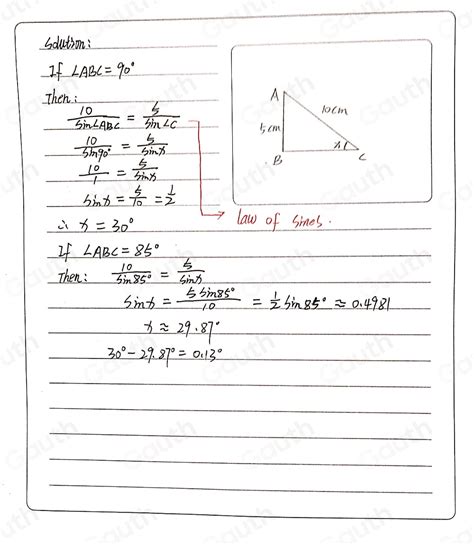 Solution:
If ∠ABC = 90°
Then:
10/sin∠ABC = 5/sin∠C
10/sin90° = 5/sinx
10/1 = 5/sinx
sinx = 5/10 = 1/2
→ law of sines.
∴ x = 30°
If ∠ABC = 85°
Then: 10/sin85° = 5/sinx
sinx = 5sin85°/10 = 1/2 sin85° ≈ 0.4981
x ≈ 29.87°
30° - 29.87° = 0.13°
A
10cm
5cm
x
B
C
Gauth